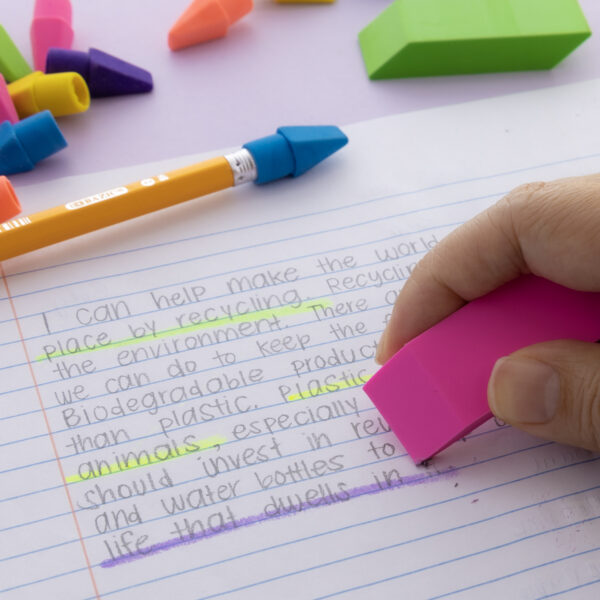 BRAZIL
I can help make the world
place by recycling. Recycling
the environment. There
we can do to keep the
Biodegradable product
than plastic. Plastic
animals, especially
should invest in
and water bottles to
life that dwells in